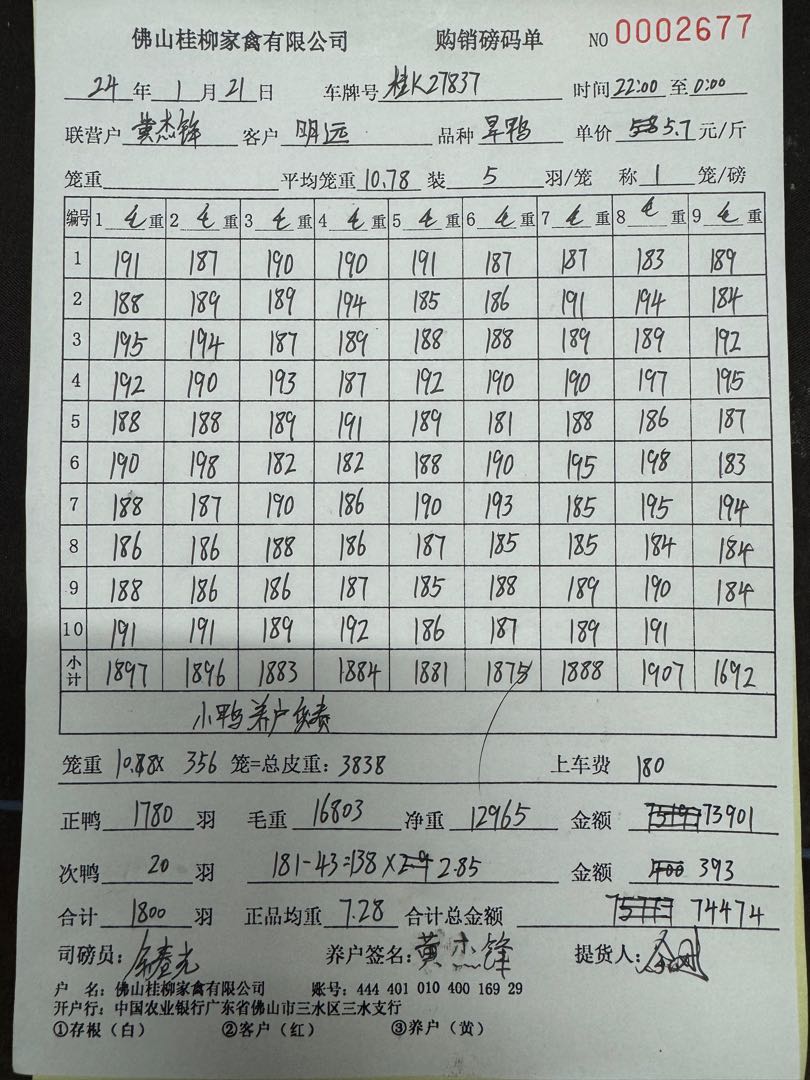 佛山桂柳家禽有限公司 购销磅码单 NO 0002677
24 年 1 月 21 日 车牌号 桂K27837 时间 22:00 至 0:00
联营户 黄杰锋 客户 明远 品种 旱鸭 单价 5.7 元/斤
笼重 平均笼重 10.78 装 5 羽/笼 称 1 笼/磅
编号 1 毛 重 2 毛 重 3 毛 重 4 毛 重 5 毛 重 6 毛 重 7 毛 重 8 毛 重 9 毛 重
1 191 187 190 190 191 187 187 183 189
2 188 189 189 194 185 186 191 194 184
3 195 194 187 189 188 188 189 189 192
4 192 190 193 187 192 190 190 197 195
5 188 188 189 191 189 181 188 186 187
6 190 198 182 182 188 190 195 198 183
7 188 187 190 186 190 193 185 195 194
8 186 186 188 186 187 185 185 184 184
9 188 186 186 187 185 188 189 190 184
10 191 191 189 192 186 187 189 191
小计 1897 1896 1883 1884 1881 1875 1888 1907 1692
小鸭养户负责
笼重 X 356 笼=总皮重：3838 上车费 180
正鸭 1780 羽 毛重 16803 净重 12965 金额 73901
次鸭 20 羽 181-43=138 X 2.85 金额 393
合计 1800 羽 正品均重 7.28 合计总金额 74474
司磅员： 养户签名：黄杰锋 提货人：
户 名：佛山桂柳家禽有限公司 账号：444 401 010 400 169 29
开户行：中国农业银行广东省佛山市三水区三水支行
①存根（白） ②客户（红） ③养户（黄）